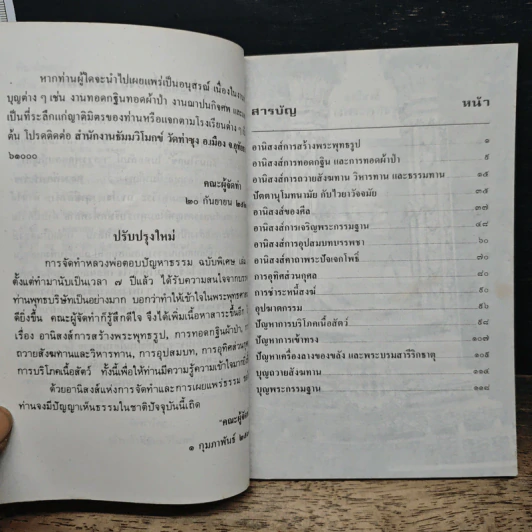 หากท่านผู้ใดจะนำไปเผยแพร่เป็นอนุสรณ์ เนื่องในงาน
บุญต่าง ๆ เช่น งานทอดกฐินทอดผ้าป่า งานฌาปนกิจศพ
เป็นที่ระลึกแก่ญาติมิตรของท่านหรือแจกตามโรงเรียนต่าง ๆ
ต้น โปรดติดต่อ สำนักงานธัมมวิโมกข์ วัดท่าซุง อ.เมือง จ.อุทัย
๖๑๐๐๐
คณะผู้จัดทำ
๒๐ กันยายน
ปรับปรุงใหม่
การจัดทำหลวงพ่อตอบปัญหาธรรม ฉบับพิเศษ
ตั้งแต่ทำมานับเป็นเวลา ๗ ปีแล้ว ได้รับความสนใจจาก
ท่านพุทธบริษัทเป็นอย่างมาก บอกว่าทำให้เข้าใจในพระพุทธ
ดียิ่งขึ้น คณะผู้จัดทำก็รู้สึกดีใจ จึงได้เพิ่มเนื้อหาสาระขึ้นอีก
เรื่อง อานิสงส์การสร้างพระพุทธรูป, การทอดกฐินผ้าป่า,
ถวายสังฆทานและวิหารทาน, การอุปสมบท, การอุทิศส่วน
การบริโภคเนื้อสัตว์ ทั้งนี้เพื่อให้ท่านมีความรู้ความเข้าใจ
ด้วยอานิสงส์แห่งการจัดทำและการเผยแพร่ธรรม
ท่านจงมีปัญญาเห็นธรรมในชาติปัจจุบันนี้เถิด
"คณะผู้จัด
๑ กุมภาพันธ์
สารบัญ หน้า
อานิสงส์การสร้างพระพุทธรูป ๑
อานิสงส์การทอดกฐิน และการทอดผ้าป่า ๕
อานิสงส์การถวายสังฆทาน วิหารทาน และธรรมทาน ๑๕
ปัตตานุโมทนามัย กับไวยาวัจจมัย ๓๕
อานิสงส์ของศีล ๓๗
อานิสงส์การเจริญพระกรรมฐาน ๔๘
อานิสงส์การอุปสมบทบรรพชา ๖๐
อานิสงส์คาถาพระปัจเจกโพธิ์ ๗๐
การอุทิศส่วนกุศล ๘๐
การชำระหนี้สงฆ์ ๙๐
อุปฆาตกรรม ๙๖
ปัญหาการบริโภคเนื้อสัตว์ ๙๘
ปัญหาการเข้าทรง ๑๐๗
ปัญหาเครื่องลางของขลัง และพระบรมสารีริกธาตุ ๑๐๕
บุญถวายสังฆทาน ๑๑๔
บุญพระกรรมฐาน ๑๑๘